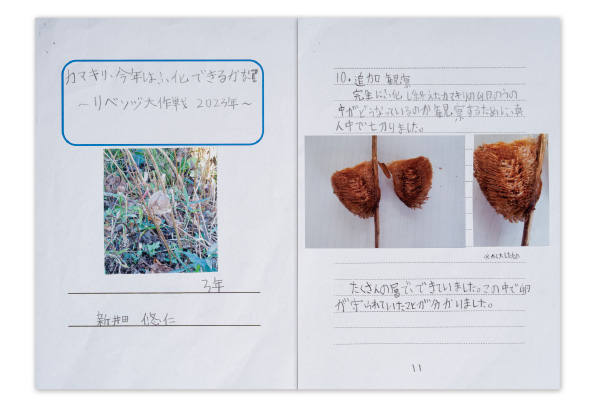 カマキリ、今年はふ化できるか観
～リベンジ大作戦 2023年～
3年
新井田 悠仁
10.追加観察
完全にふ化し終えたカマキリの卵のうの
中がどうなっているのか観察するために、真
ん中で切りました。
たくさんの層でできていました。この中で卵
が守られていたことが分かりました。
11